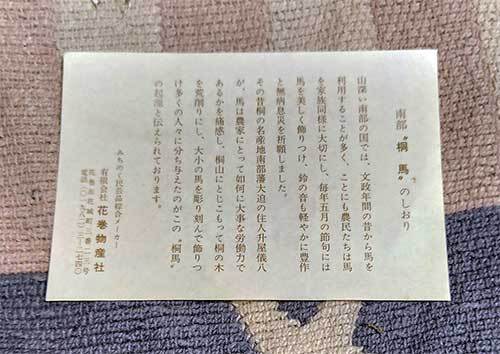 南部〝桐馬〟のしおり
山深い南部の国では、文政年間の昔から馬を
利用することが多く、ことにも農民たちは馬
を家族同様に大切にし、毎年五月の節句には
馬を美しく飾りつけ、鈴の音も軽やかに豊作
と無病息災を祈願しました。
その昔桐の名産地南部藩大迫の住人升屋儀八
が、馬は農家にとって如何に大事な労働力で
あるかを痛感し、桐山にとじこもって桐の木
を荒削りにし、大小の馬を彫り刻んで飾りつ
け多くの人々に分ち与えたのがこの〝桐馬〟
の起源と伝えられております。
みちのく民芸品綜合メーカー
有限会社 花巻物産社
花巻市花城町三番二三号
電話(〇一九八)二三—二七四〇